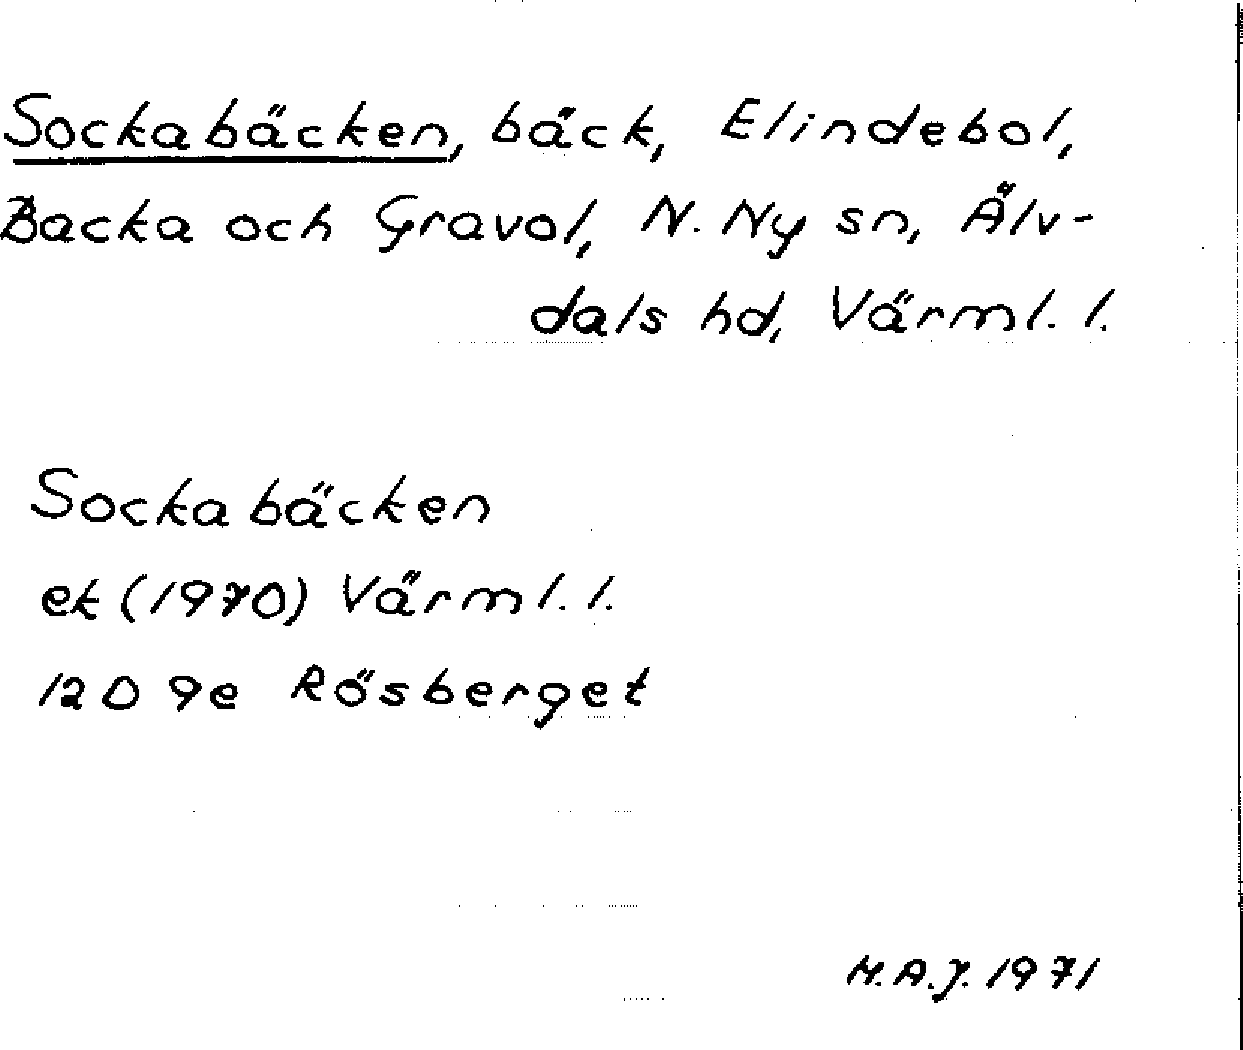 Sockabäcken, bäck, Elindebol,
Backa och Gravol, N. Ny sn, Älv-
dals hd, Värml. l.
Sockabäcken
ek (1970) Värml. l.
12D 9e Rösberget
M.A.J. 1971